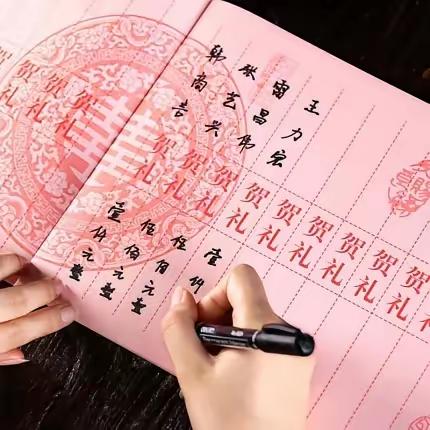 贺礼
贺礼
贺礼
贺礼
贺礼
王力宏 贺礼 壹仟
雷昌伟 贺礼 伍佰元整
张艺兴 贺礼 伍佰元整
韩尚言 贺礼 壹仟元整
贺礼
贺礼
贺礼